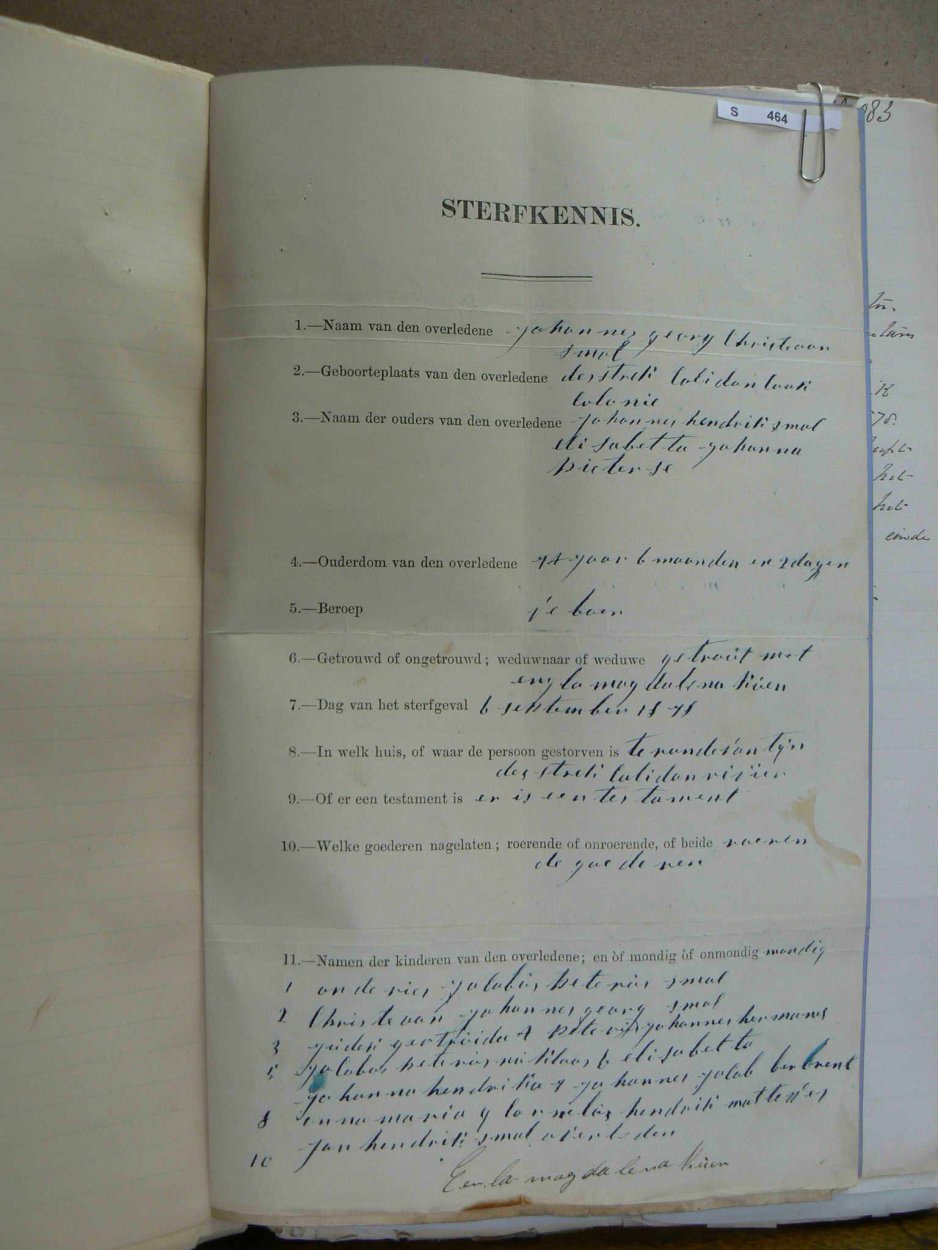 S 464
983
STERFKENNIS.
1.—Naam van den overledene johannes georg Christiaan
smal
2.—Geboorteplaats van den overledene destrek
colonie
3.—Naam der ouders van den overledene johannes hendrik smal
elisabetta johanna
pieterse
4.—Ouderdom van den overledene jaar 6 maanden en 2 dagen
5.—Beroep boer
6.—Getrouwd of ongetrouwd; weduwnaar of weduwe getrout met
magdalena
7.—Dag van het sterfgeval 6 september 1878
8.—In welk huis, of waar de persoon gestorven is te
destrek calidon rivier
9.—Of er een testament is er is een testament
10.—Welke goederen nagelaten; roerende of onroerende, of beide roeren
de goederen
11.—Namen der kinderen van den overledene; en òf mondig òf onmondig mondig
1 anderies jakobus peterus smal
2 Christiaan johannes georg smal
3 gertruida 4 peterus johannes hermanus
5 jakobus peterus niklaas 6 elisabetta
johanna hendrika 7 johannes jakob
8 anna maria 9 cornelis hendrik
10 jan hendrik smal overleden
magdalena